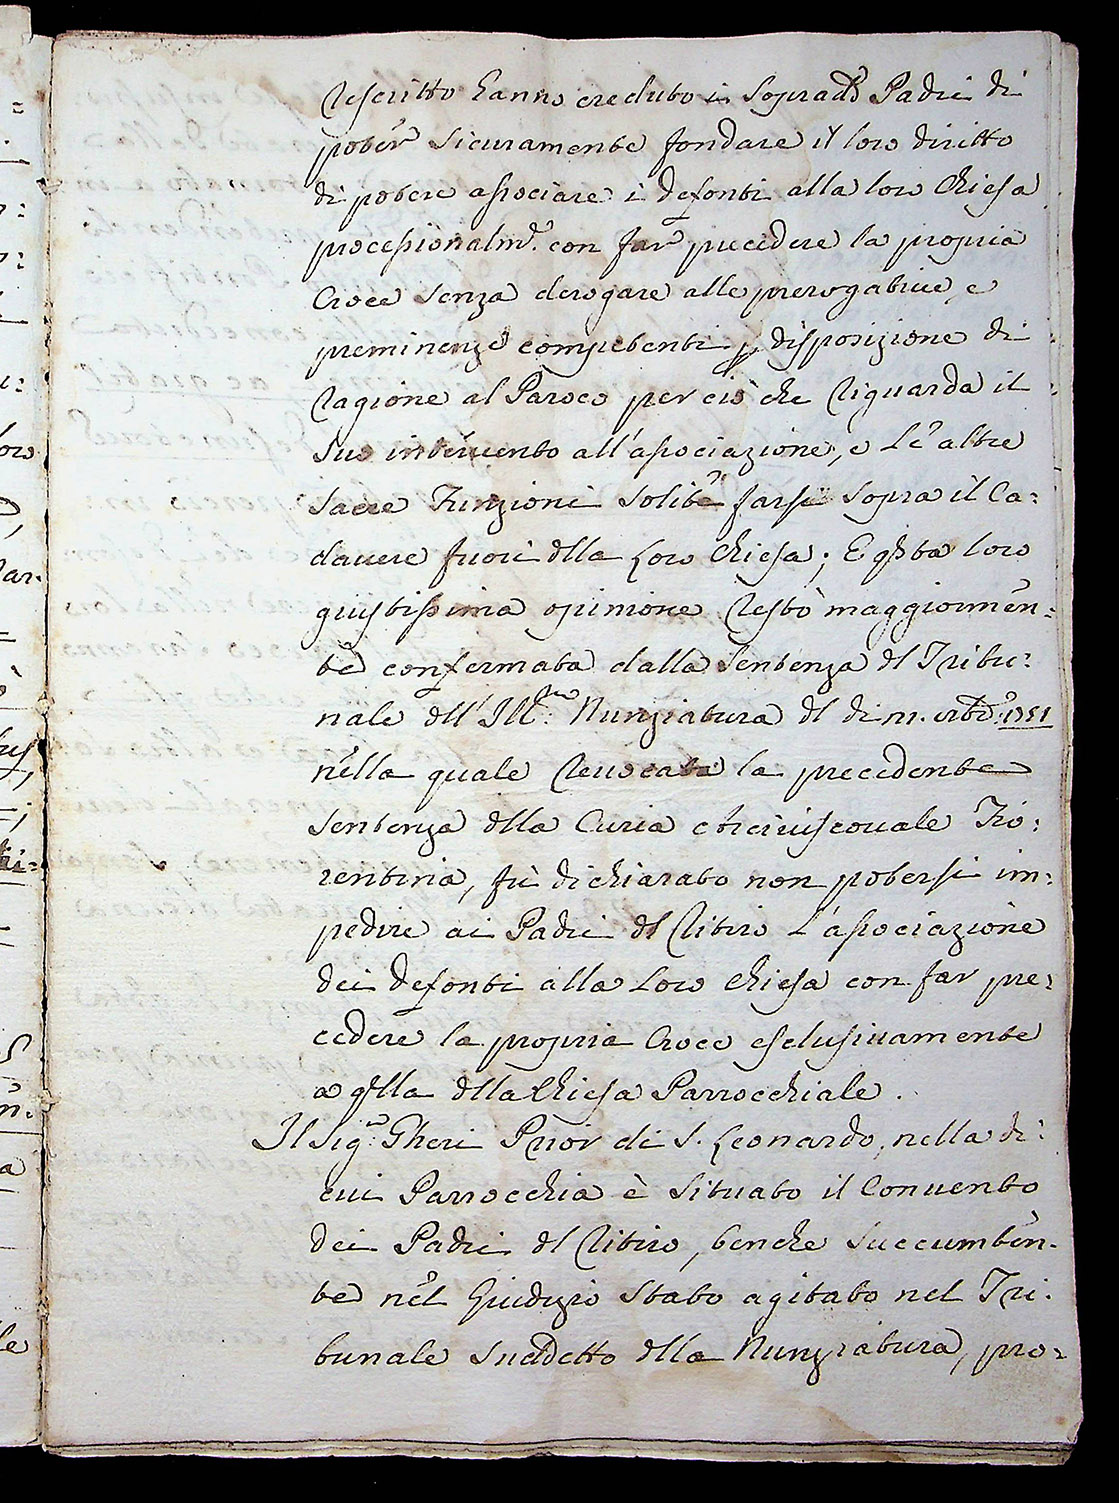 Rescritto hanno creduto i Soprad.i Padri di
poter sicuramente fondare il loro diritto
di potere associare i defonti alla loro Chiesa
processionalm.e con far precedere la propria
Croce senza derogare alle prerogative, e
preminenze competenti p disposizione di
Ragione al Paroco per ciò che riguarda il
suo intervento all'associazione, e le altre
sacre Funzioni solite farsi sopra il Ca=
davere fuori dlla loro Chiesa; E qsta loro
giustissima opinione restò maggiormen=
te confermata dalla Sentenza dl Tribu=
nale dll'Ill.ma Nunziatura dl di 11. 1751
nella quale revocata la precedente
sentenza dlla Curia Arcivescovale Fio=
rentina, fù dichiarato non potersi im=
pedire ai Padri dl Ritiro l'associazione
dei defonti alla loro Chiesa con far pre=
cedere la propria Croce esclusivamente
a qlla dlla Chiesa Parrocchiale.
Il Sig.r Gheri Prior di S. Leonardo, nella di
cui Parrocchia è situato il Convento
dei Padri dl Ritiro, benche succumben-
te nel Giudizio stato agitato nel Tri=
bunale suddetto dlla Nunziatura, pro=